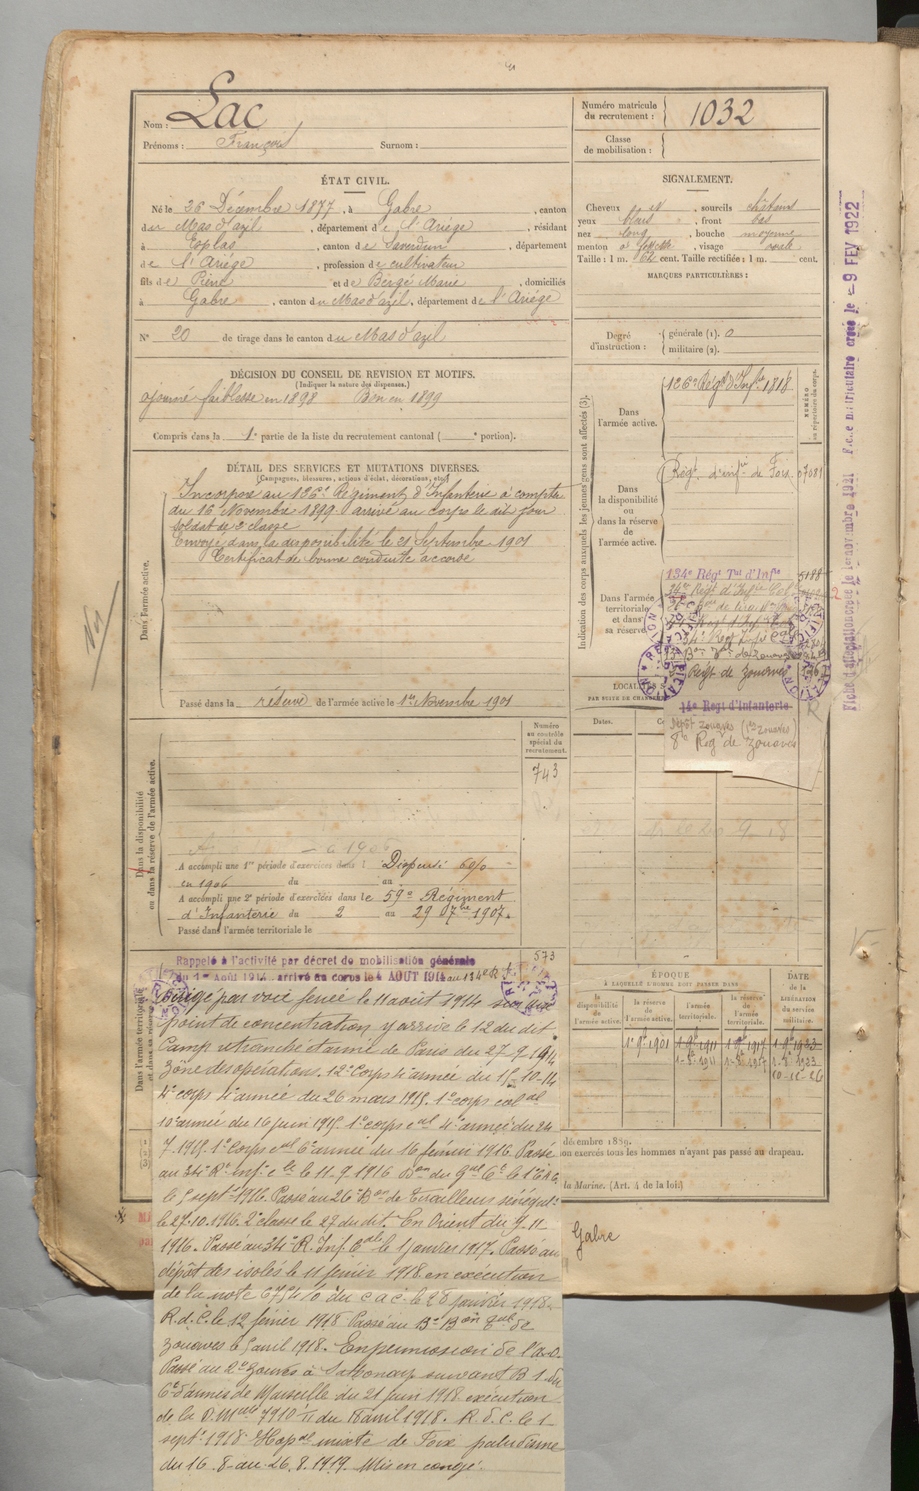 Nom : Lac
Prénoms : François Surnom :
Numéro matricule
du recrutement : 1032
Classe
de mobilisation :
ÉTAT CIVIL.
Né le 26 Décembre 1877, à Gabre, canton
du Mas d'azil, département de l'Ariége, résidant
à Esplas, canton de Saverdun, département
de l'Ariége, profession de cultivateur
fils de Pierre et de Bergé Marie, domiciliés
à Gabre, canton du Mas d'azil, département de l'Ariége
N° 20 de tirage dans le canton du Mas d'azil
SIGNALEMENT.
Cheveux N, sourcils châtains
yeux bleus, front bas
nez long, bouche moyenne
menton à fossette, visage ovale
Taille : 1 m. cent. Taille rectifiée : 1 m. cent.
MARQUES PARTICULIÈRES :
Degré
d'instruction :
générale (1). 0
militaire (2).
DÉCISION DU CONSEIL DE REVISION ET MOTIFS.
(Indiquer la nature des dispenses.)
ajourné faiblesse en 1898 Bon en 1899
Compris dans la 1e partie de la liste du recrutement cantonal ( e portion).
DÉTAIL DES SERVICES ET MUTATIONS DIVERSES.
(Campagnes, blessures, actions d'éclat, décorations, etc.)
Dans l'armée active.
Incorporé au 126e Régiment d'Infanterie à compter
du 16 Novembre 1899 arrivé au corps le dit jour
Soldat de 2e classe
Envoyé dans la disponibilité le 21 Septembre 1901
Certificat de bonne conduite accordé
Passé dans la réserve de l'armée active le 1er Novembre 1901
Non
Indication des corps auxquels les jeunes gens sont affectés (3).
Dans
l'armée active.
126e Régt d'Infie 1818
NUMÉRO
au répertoire du corps.
Dans
la disponibilité
ou
dans la réserve
de
l'armée active.
Régt d'infie de Foix 07081
Dans l'armée
territoriale
et dans
sa réserve
134e Régt Tal d'Infie 5188
34e Régt d'Infie Col
34e Régt
Régt de Zouaves
14e Regt d'Infanterie
Dépôt Zouaves
8e Reg de Zouaves
Fiche d'affectation créée le 1er novembre 1921 Fiche matriculaire créée le -9 FEV 1922
LOCALITÉS
Dates.
Numéro
au contrôle
spécial du
recrutement.
743
Dans la disponibilité
ou dans la réserve de l'armée active.
A accompli une 1re période d'exercices dans : Dispensé 6 0/0
en 1906 du au
A accompli une 2e période d'exercices dans le 59e Régiment
d'Infanterie du 2 au 29 07bre 1907.
Passé dans l'armée territoriale le
573
Dans l'armée territoriale
et dans sa réserve
Rappelé à l'activité par décret de mobilisation générale
du 1er Août 1914 arrivé au corps le 4 AOUT 1914 au 134e R.I.
Dirigé par voie ferrée le 11 août 1914 sur un
point de concentration y arrive le 12 du dit
Camp retranché d'armée de Paris du 27-9-1914
Zône des opérations. 12e Corps 4e armée du 15-10-14
4e corps 4e armée du 26 mars 1915. 1er corps cal
10e armée du 16 juin 1915. 1er corps cal 4e armée du 24
7-1915. 1er corps cal 6e armée du 16 février 1916. Passé
au 34e Rt Inf. cle le 11-9-1916
le 5 sept 1916. Passé au 26e Bon de tirailleurs sénégals
le 27-10-1916. 2e classe le 27 du dit. En Orient du 9-11
1916. Passé au 34e R. Inf. Cale le 1 janvier 1917. Passé au
dépôt des isolés le 11 février 1918 en exécution
de la note du C.A.C. le 28 janvier 1918.
R.d.C. le 12 février 1918 Passé au 13e Bon de
Zouaves le 5 avril 1918. En permission de l'A.O.
Passé au 2e Zouaves à Sathonay suivant B 1 du
Ct d'armes de Marseille du 21 juin 1918 exécution
de la D.Mlle 7910 du 18 avril 1918. R.d.C. le 1
sept. 1918. Hopal mixte de Foix paludisme
du 16-8 au 26-8-1919. Mis en congé.
ÉPOQUE
À LAQUELLE L'HOMME DOIT PASSER DANS
la
disponibilité
de
l'armée active.
la réserve
de
l'armée active.
l'armée
territoriale.
la réserve
de
l'armée
territoriale.
DATE
de la
LIBÉRATION
du
service
militaire.
1er 9bre 1901 1er 9bre 1911 1er 9bre 1917 1er 9bre 1923
10-12-26
décembre 1889.
ou exercés tous les hommes n'ayant pas passé au drapeau.
la Marine. (Art. 4 de la loi)
Gabre